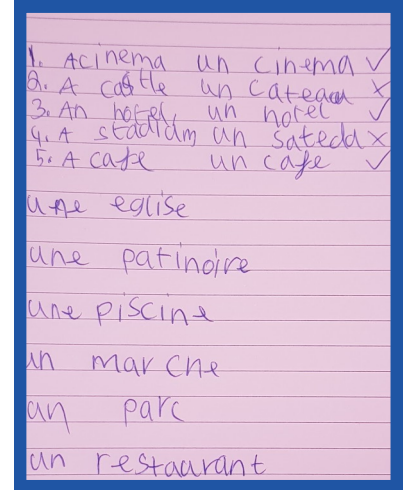 1. A cinema un cinema ✓
2. A castle un cateau ✗
3. An hotel, un hotel ✓
4. A stadium un satedd ✗
5. A cafe un cafe ✓
une eglise
une patinoire
une piscine
un marche
un parc
un restaurant